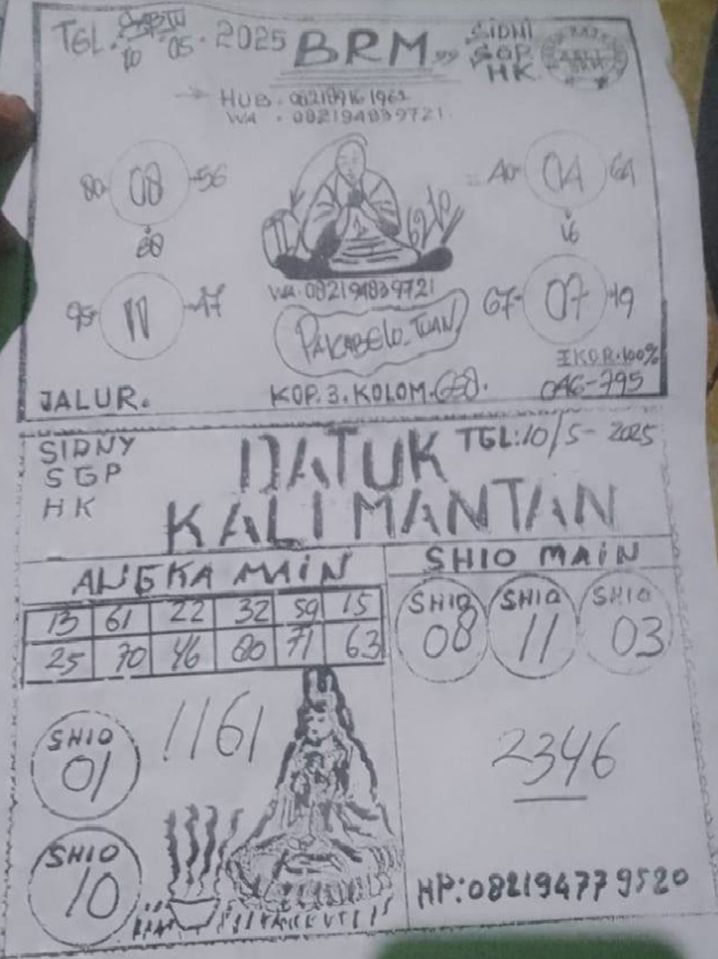 TGL. SABTU
10 05 - 2025
BRM
SiDNi
SGP
HK
WA . 082194839721
80 08 56
88
95 11 47
A0 04 64
16
67 07 19
WA. 082194839721
PAKABELO. TUAN
JALUR.
KOP. 3. KOLOM. 658.
EKOR. 100%
046-795
SIDNY
SGP
HK
DATUK
KALIMANTAN
TGL:10/5- 2025
ANGKA MAIN
13 61 22 32 59 15
25 70 46 80 71 63
SHIO MAIN
SHIO 08
SHIO 11
SHIO 03
SHIO 01
1161
2346
SHIO 10
HP:082194779520